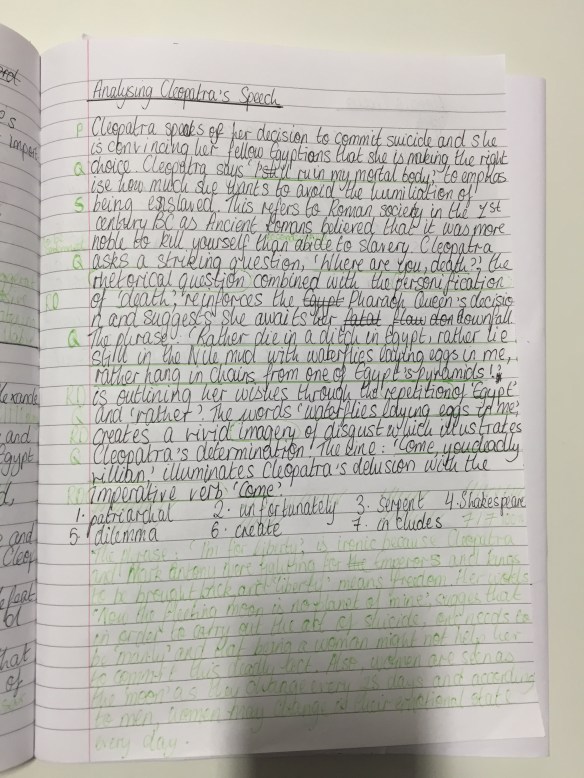 Analysing Cleopatra's Speech
P Cleopatra speaks of her decision to commit suicide and she
is convincing her fellow Egyptians that she is making the right
Q choice. Cleopatra says 'I'll ruin my mortal body,' to emphas
ise how much she wants to avoid the humiliation of
S being enslaved. This refers to Roman society in the 1st
century BC as Ancient Romans believed that it was more
noble to kill yourself than abide to slavery. Cleopatra
Q asks a striking question, 'Where are you, death?', the
rhetorical question combined with the personification
of 'death,' reinforces the Egypt Pharaoh Queen's decisio
n and suggests she awaits her fatal flaw downfall
Q The phrase: 'Rather die in a ditch in Egypt, rather lie
still in the Nile mud with waterflies laying eggs in me,
rather hang in chains from one of Egypt's pyramids!',
is outlining her wishes through the repetition of 'Egypt'
Q and 'rather'. The words 'waterflies laying eggs in me,'
creates a vivid imagery of disgust which illustrates
Q Cleopatra's determination. The line: 'Come, you deadly
villian' illuminates Cleopatra's delusion with the
imperative verb 'Come'.
1. patriarchal 2. unfortunately 3. Serpent 4. Shakespeare
5. dilemma 6. create 7. includes 7/7
The phrase: 'I'm for liberty', is ironic because Cleopatra
and Mark Antony were for the emperors and kings
to be brought back and 'liberty' means freedom. Her words
'Now the fleeting moon is no planet of mine', that
in order to carry out the act of suicide, needs to
be 'manly' and that being a woman might not help her
to commit this deadly act. Also, women are seen as
the moon as they change every 28 days and according
to men, women may change their emotional state
every day.